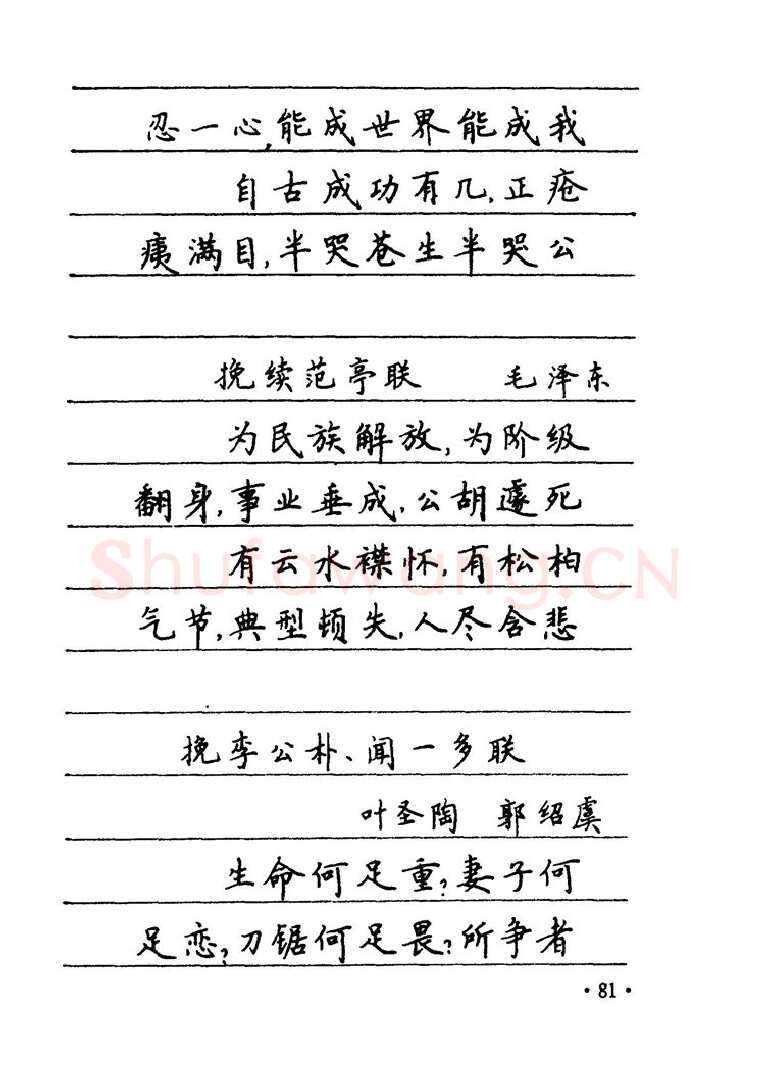 忍一心,能成世界能成我
自古成功有几,正疮
痍满目,半哭苍生半哭公
挽续范亭联 毛泽东
为民族解放,为阶级
翻身,事业垂成,公胡遽死
有云水襟怀,有松柏
气节,典型顿失,人尽含悲
挽李公朴、闻一多联
叶圣陶 郭绍虞
生命何足重?妻子何
足恋?刀锯何足畏?所争者
·81·
Shufawang.CN